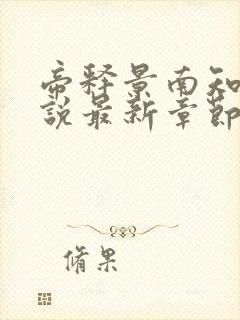 帝释景南知
說最新章節
脩果